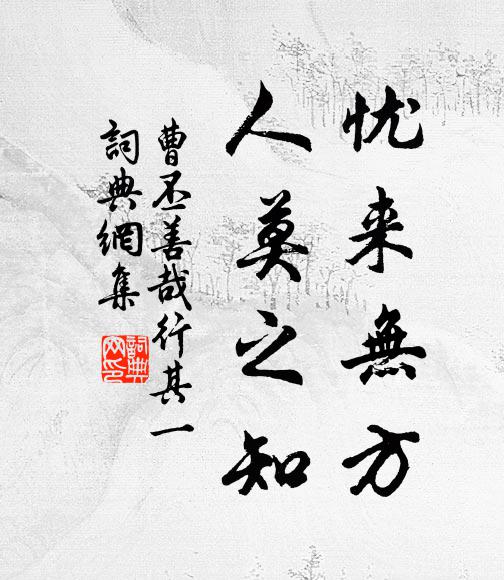 忧来無方
人莫之知
曹丕善哉行其一
詞典網集
詞典网印